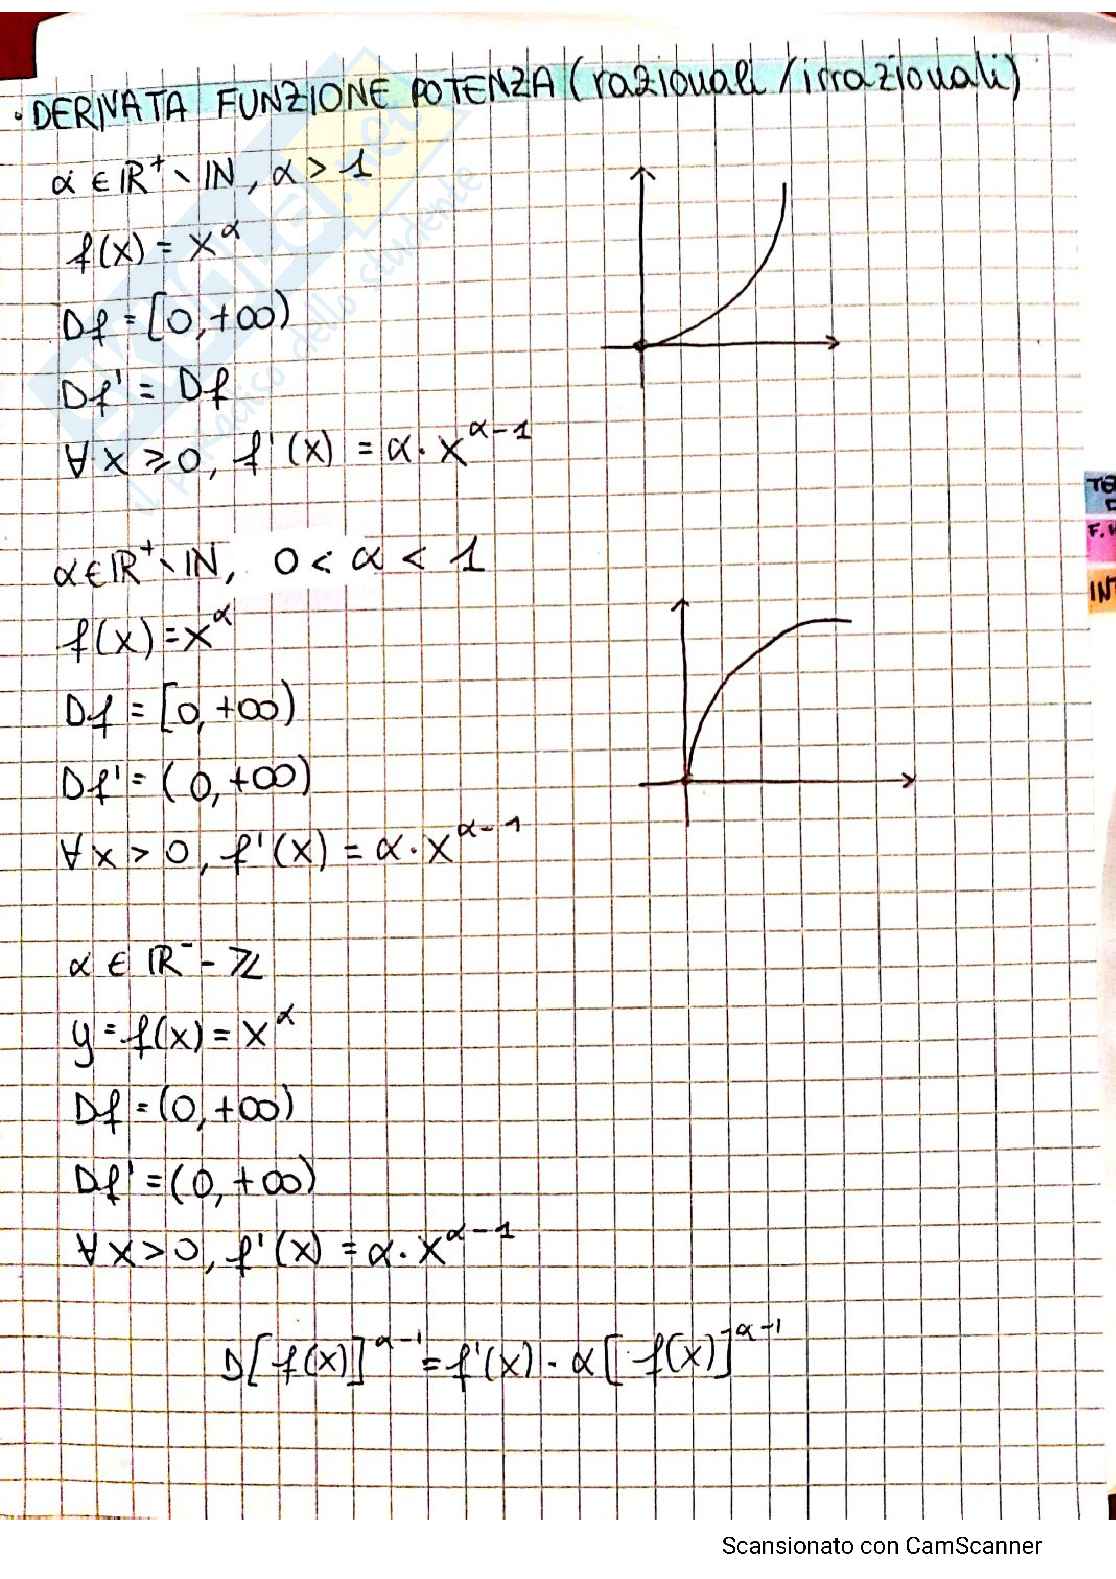 • DERIVATA FUNZIONE POTENZA (razionali / irrazionali)
α ∈ ℝ⁺ \ ℕ, α > 1
f(x) = x^α
Df = [0, +∞)
Df' = Df
∀ x ⩾ 0, f'(x) = α · x^(α-1)
TE
F.
INT
α ∈ ℝ⁺ \ ℕ, 0 < α < 1
f(x) = x^α
Df = [0, +∞)
Df' = (0, +∞)
∀ x > 0, f'(x) = α · x^(α-1)
α ∈ ℝ⁻ - ℤ
y = f(x) = x^α
Df = (0, +∞)
Df' = (0, +∞)
∀ x > 0, f'(x) = α · x^(α-1)
D[f(x)]^(α-1) = f'(x) · α[f(x)]^(α-1)
Scansionato con CamScanner